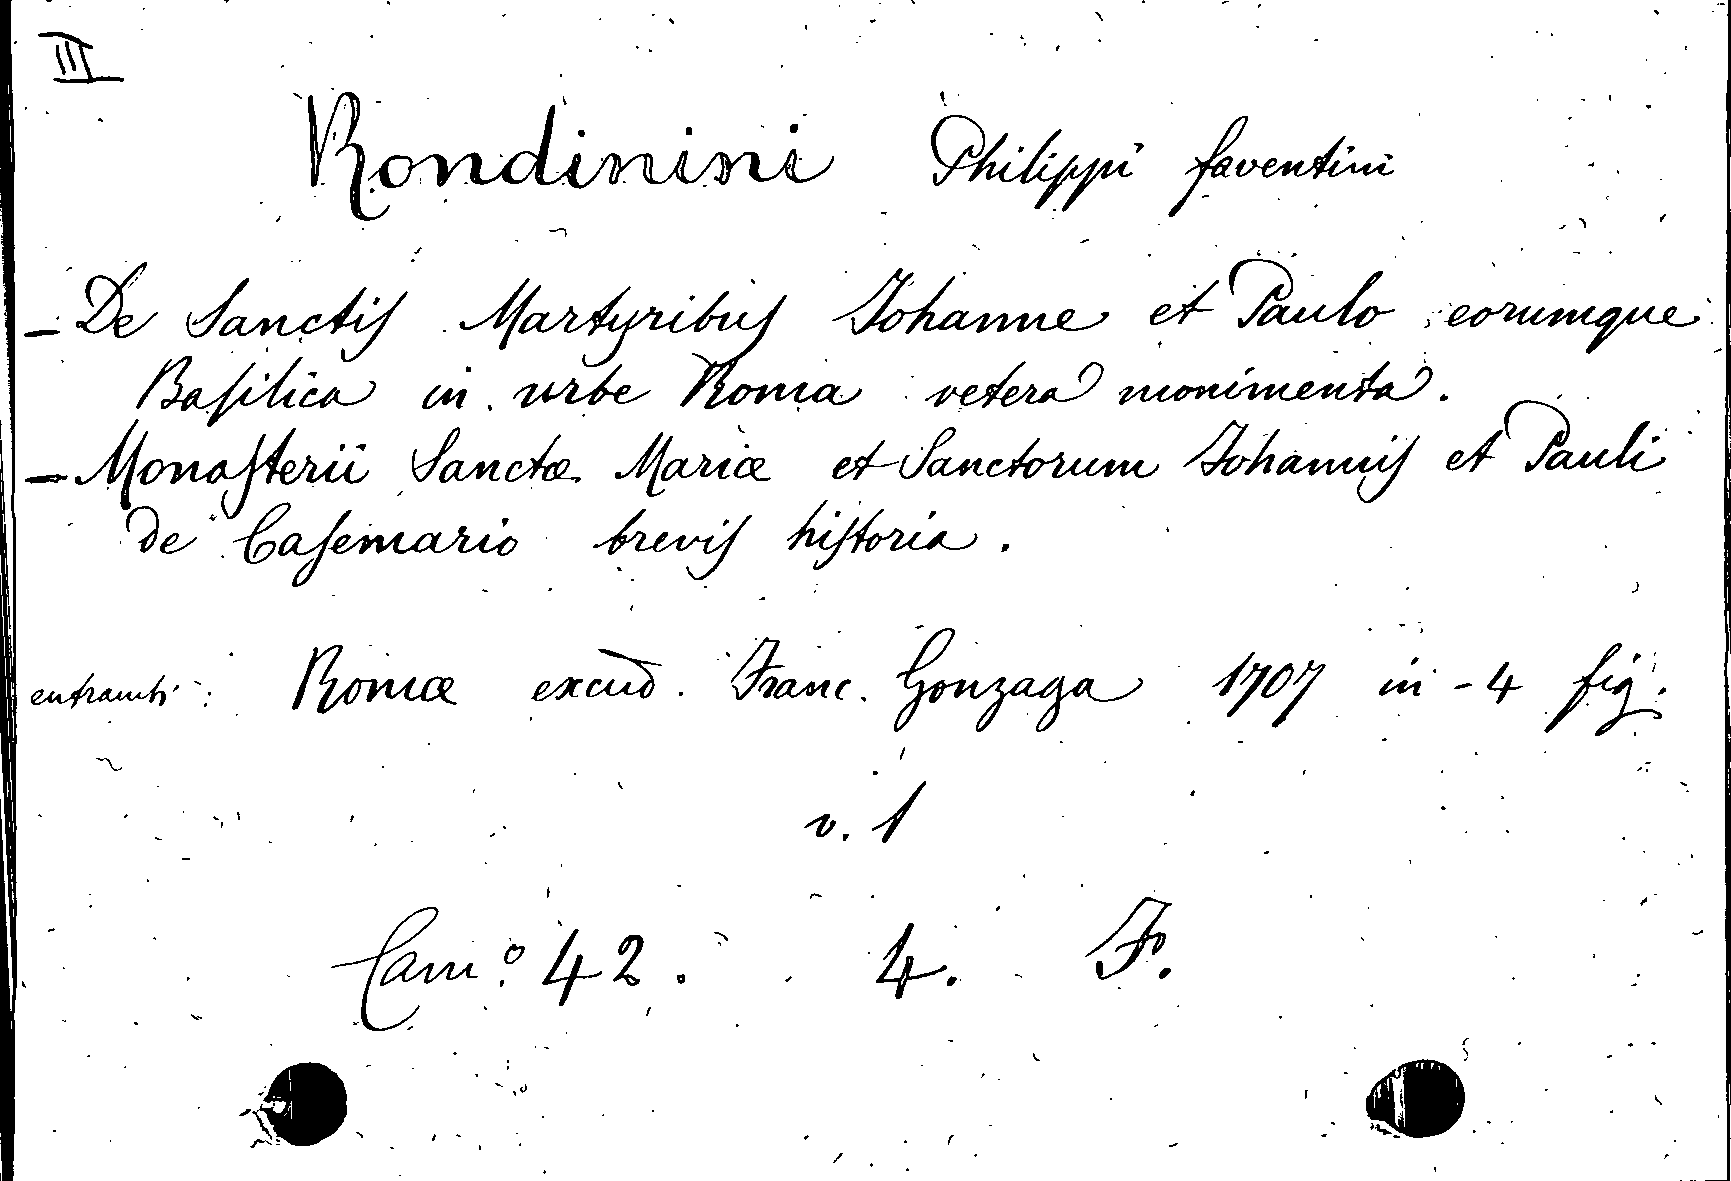 III
Rondinini Philippi faventini
- De Sanctis Martyribus Johanne et Paulo eorumque
Basilica in urbe Roma vetera monimenta.
- Monasterii Sanctæ Mariæ et Sanctorum Johannis et Pauli
de Casemario brevis historia.
entrambi: Romæ excud. Franc. Gonzaga 1707 in-4 fig.
v. 1
Cam.º 42. 4. F.